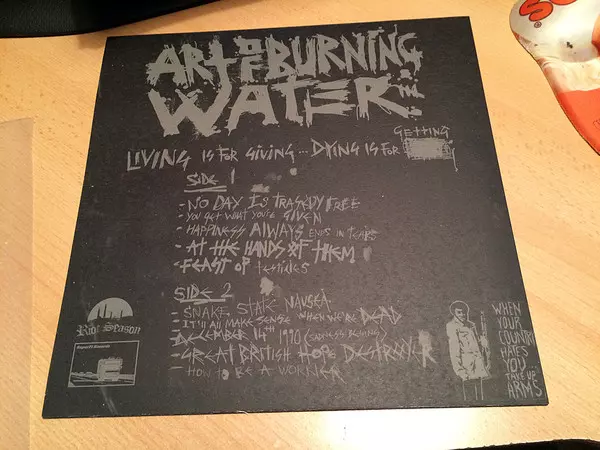 ART OF BURNING
WATER
LIVING IS FOR GIVING... DYING IS FOR GETTING
SIDE 1
- NO DAY IS TRAGEDY FREE
- YOU GET WHAT YOU'RE GIVEN
- HAPPINESS ALWAYS ENDS IN TEARS
- AT THE HANDS OF THEM
- FEAST OF testicles
SIDE 2
- SNAKE STATE NAUSEA
- IT'll All MAKE SENSE WHEN WE'RE DEAD
- DECEMBER 14th 1990 (SADNESS BEGINS)
- GREAT BRITISH HOPE DESTROYER
- HOW TO BE A
Riot Season
WHEN
YOUR
COUNTRY
HATES
YOU
TAKE UP
ARMS